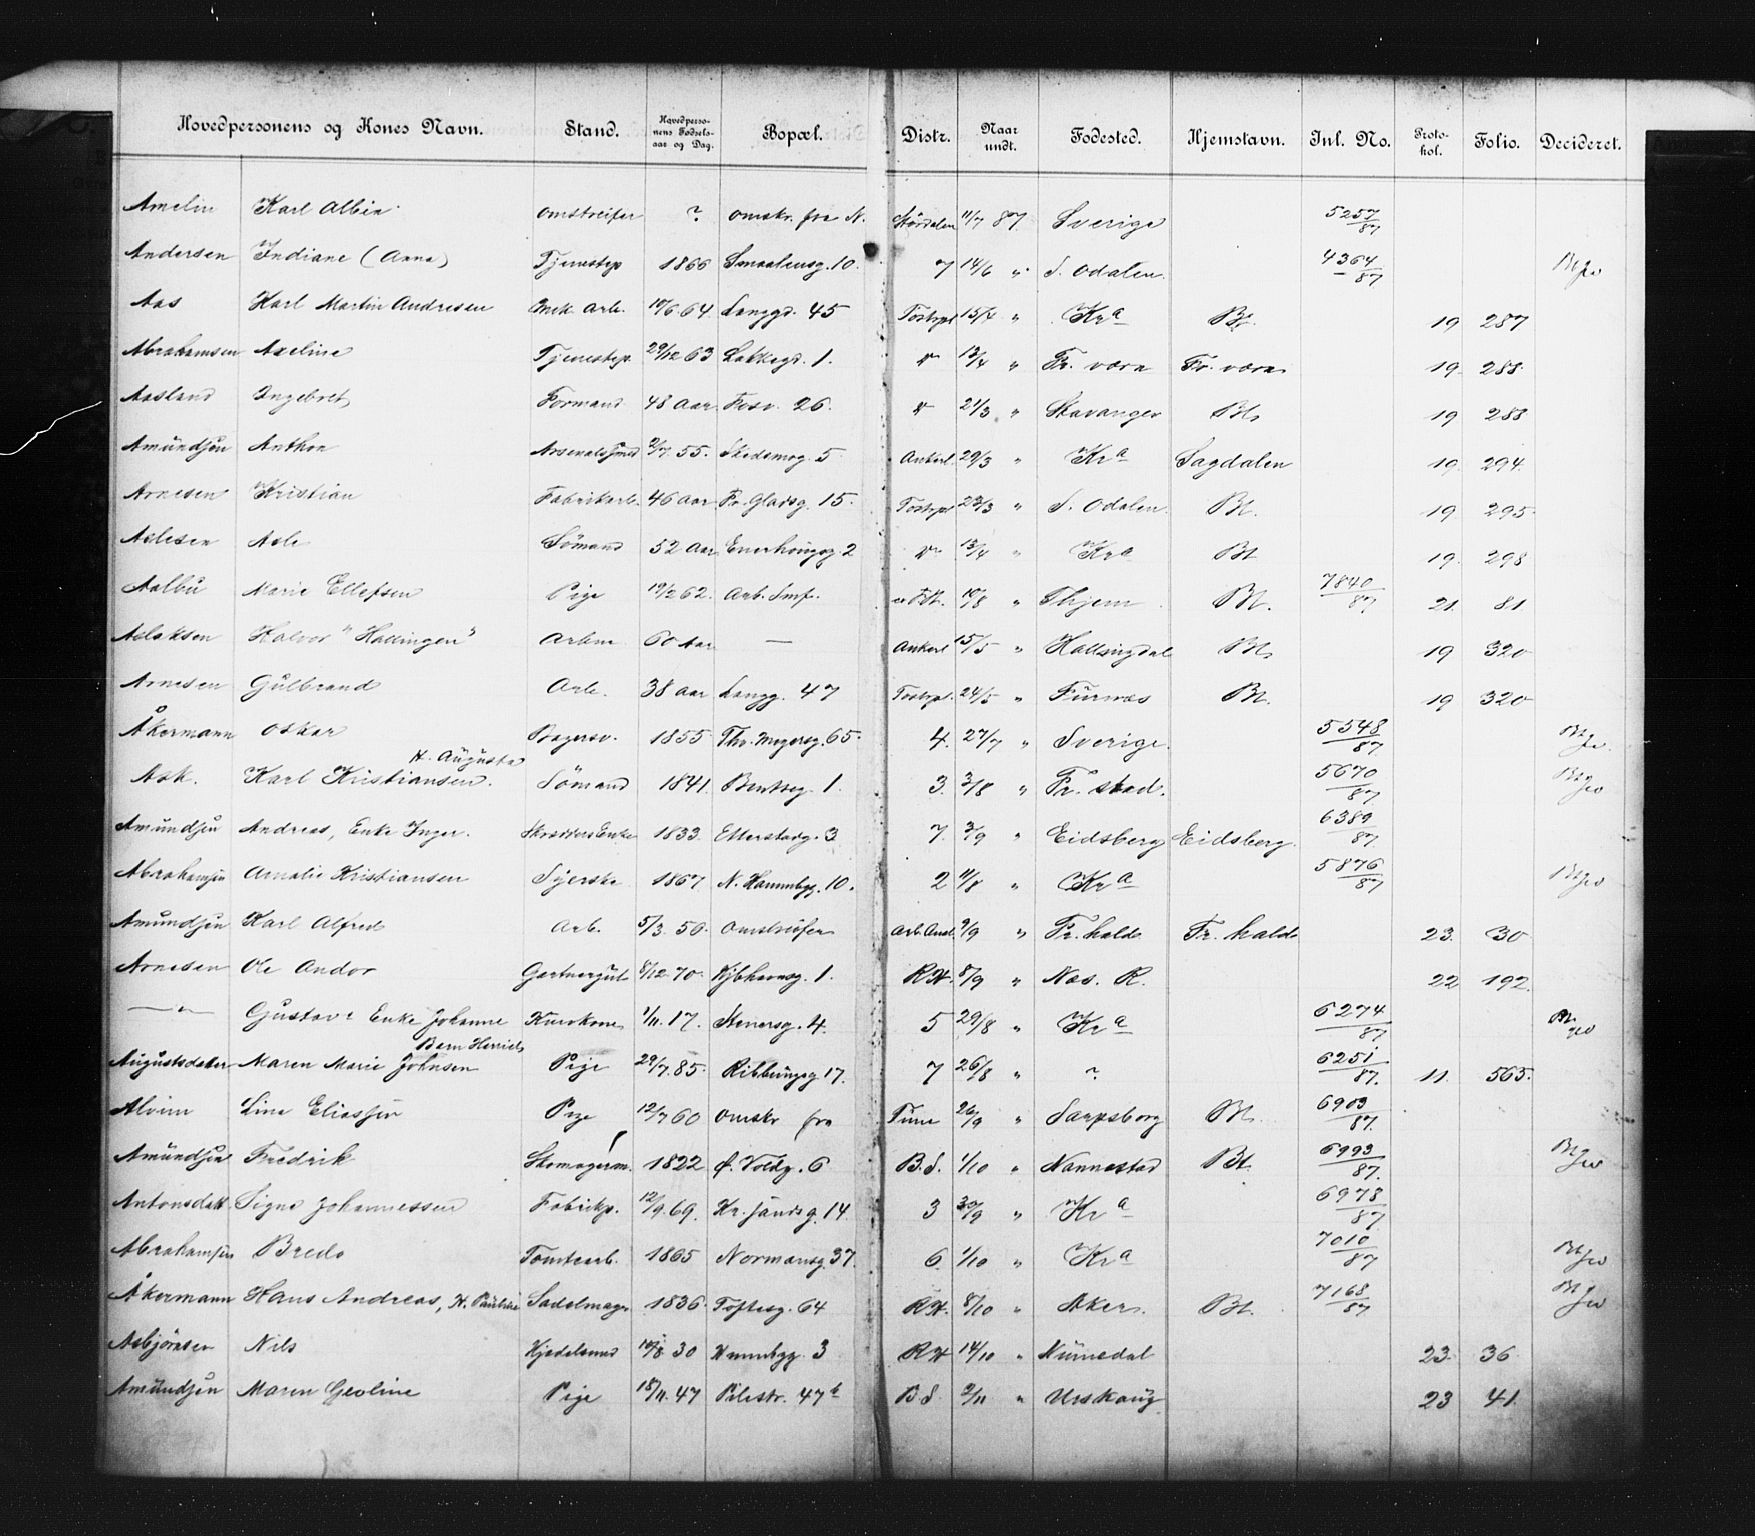 Hovedpersonens og Kones Navn. Stand. Hovedpersonens Fødselsaar og Dag. Bopæl. Distr. Naar undt. Fødested. Hjemstavn. Inl. No. Protokol. Folio. Decideret.
Amelin Karl Albin omstreifer ? omskr. fra N. Størdalen 11/7 87 Sverige 5257/87
Andersen Indiane (Anna) Tjenestep 1866 Smaalensg. 10. 7 14/6 " S. Odalen 4364/87
Aas Karl Martin Andresen Mek. Arb. 10/6 64 Langgd. 45 Tostrpl 15/4 " Kra Bt. 19 287
Abrahamsen Axeline Tjenestep. 29/12 63 Lakkegd. 1. " 13/4 " Fr. værn Fr. værn 19. 288.
Aasland Ingebret Formand 48 Aar Fosv. 26. " 21/3 " Stavanger Bt. 19 288
Amundsen Anthon Arsenalsmed 2/7. 55. Skedsmog. 5. Ankerl. 29/3 " Kra Sagdalen 19. 294.
Arnesen Kristian Fabrikarb. 46 Aar Fr. Gladsg. 15. Tostrpl 23/3 " S. Odalen. Bt. 19. 295.
Aslesen Asle Sømand 52 Aar Enerhougsg. 2 " 13/4 " Kra Bt 19. 298
Aalbu Marie Ellefsen Pige 19/2 62. Arb. Inf. 10/8 " Bt. 7840/87 21. 81.
Aslaksen Halvor "Hallingen" Arbm 60 Aar — Ankerl 15/5 " Hallingdal Bt. 19 320
Arnesen Gulbrand Arb. 38 Aar Langg. 47 Tostrpl. 24/5 " Furnæs Bt. 19 320
Åkermann Oskar 1855 Thv. Meyersg. 65. 4. 27/7 " Sverige. 5548/87
H. Augusta
Ask. Karl Kristiansen. Sømand 1841. Bentseg. 1. 3. 3/8 " Fr. stad. 5670/87
Amundsen Andreas, Enke Inger. Skrædders Enke 1833. Etterstadg. 3 7. 3/9 " Eidsberg Eidsberg. 6389/87.
Abrahamsen Amalie Kristiansen Syerske 1867 N. Hammbg. 10. 2 11/8 " Kra 5876/87
Amundsen Karl Alfred Arb. 5/3. 50. Omstreifer Arb. Anst. 9/9 " Fr. hald. Fr. hald. 23. 30
Arnesen Ole Andor Gartnergut 8/12 70. Kjbhavnsg. 1. R.H. 8/9 " Næs. R. 22 192.
—"— Gustav's Enke Johanne Kurvkone 1/11. 17. Stenersg. 4. 5 29/8 " Kra 6274/87
Barn Henriets
Augustsdatter Maren Marie Johnsen Pige 29/7. 85. Ribbungsg. 17. 7 26/8 " ? 6251/87. 11. 565.
Alvim Line Eliassen Pige 12/7 60 omskr fra Tune 26/9 " Sarpsborg Bt. 6903/87.
Amundsen Fredrik Skomagerm. 1822 Ø. Voldg. 6 B.S. 1/10 " Nannestad Bt. 6993/87.
Antonsdatt. Signe Johannessen Fabrikp. 12/9. 69. Kr. Jandsg. 14. 3 30/9 " Kra 6978/87
Abrahamsen Bredo Tomtearb. 1865 Normansg. 37. 6. 1/10 " Kra 7010/87
Åkermann Hans Andreas, H. Pauline Sadelmager 1836. Toftesg. 64 R.H. 8/10 " Aker. Bt. 7168/87
Asbjørnsen Nils Kjedelsmed 10/8. 30 Hammbgg. 3 R.H 14/10 " Numedal 23. 36.
Amundsen Maren Gevline Pige 15/11. 47 Pilestr. 47b B.S. 2/11 " Urskoug 23 41.